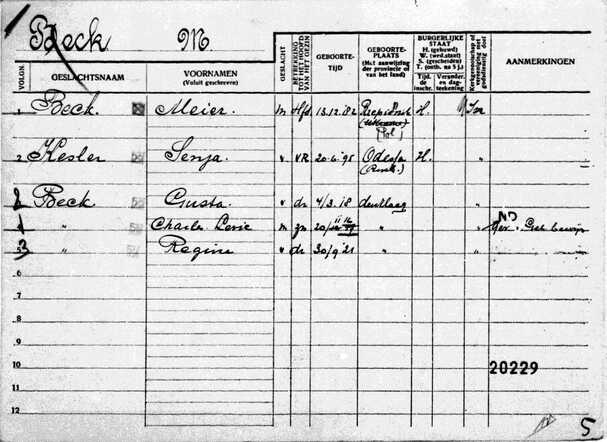 Beck M.
VOLGN. GESLACHTSNAAM VOORNAMEN (Voluit geschreven) GESLACHT BETREKKING TOT HET HOOFD VAN HET GEZIN GEBOORTE-TIJD GEBOORTE-PLAATS (Met aanwijzing der provincie of van het land) BURGERLIJKE STAAT H. (gehuwd) W. (wed.staat) S. (gescheiden) T. (ontb. na 5 j.) Tijd. de inschr. Verander. en dag-teekening Kerkgenootschap of vereeniging met godsdienstig doel AANMERKINGEN
1 Beck. Meier. m Hfd 13.12.82 (Pol.) H.
2 Kesler Senja. v VR 20.6.95 Odessa (Rusl.) H. "
2 Beck Gusta. v dr 4/3.18 den Haag "
1 " Charles m zn 20/ " " ND
3 " Regine v dr 30/9 21 " "
6
7
8
9
10 20229
11
12
5